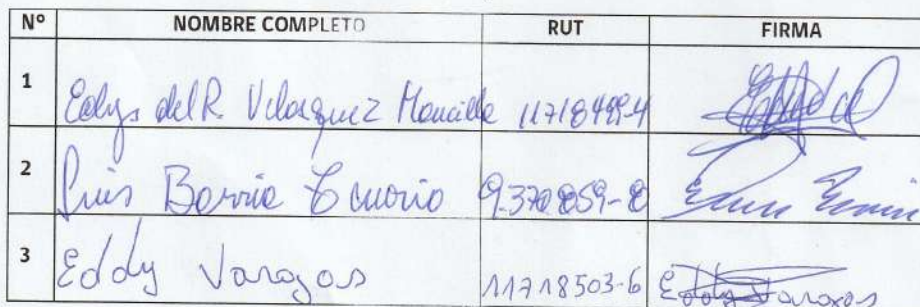 Nº NOMBRE COMPLETO RUT FIRMA
1 Edys del R Velasquez Mancilla 11718499-4
2 Luis Barria Tenorio 9.370859-8
3 Eddy Vargas 11718503-6 Eddy Vargas